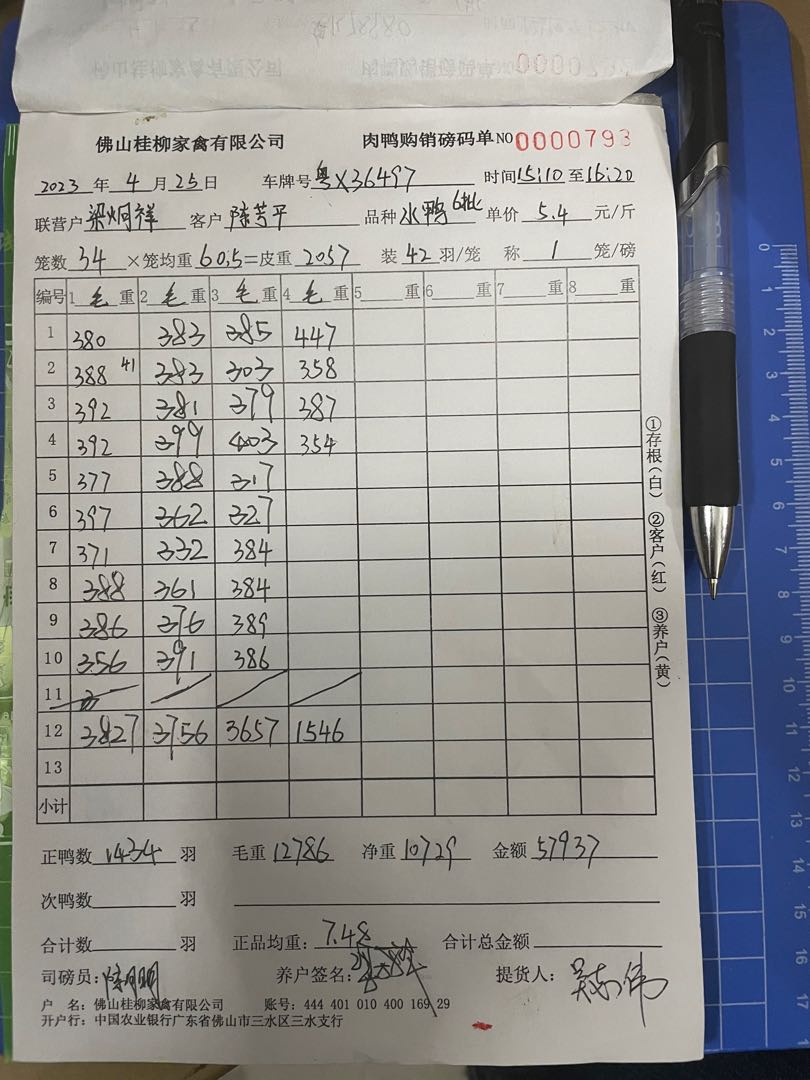 佛山桂柳家禽有限公司 肉鸭购销磅码单 NO 0000793
2023 年 4 月 25 日 车牌号 粤X36497 时间 15:10 至 16:20
联营户 梁炯祥 客户 陈芳平 品种 水鸭 6批 单价 5.4 元/斤
笼数 34 ×笼均重 60.5 =皮重 2057 装 42 羽/笼 称 1 笼/磅
编号 1 毛 重 2 毛 重 3 毛 重 4 毛 重 5 重 6 重 7 重 8 重
1 380 383 385 447
2 388 41 383 303 358
3 392 381 379 387
4 392 399 403 354
5 377 388 317
6 397 362 327
7 371 332 384
8 388 361 384
9 386 376 389
10 356 391 386
11
12 3827 3756 3657 1546
13
小计
正鸭数 1434 羽 毛重 12786 净重 10729 金额 57937
次鸭数 羽
合计数 羽 正品均重: 7.48 合计总金额
司磅员: 养户签名: 提货人: 吴志伟
户 名: 佛山桂柳家禽有限公司 账号: 444 401 010 400 169 29
开户行: 中国农业银行广东省佛山市三水区三水支行
①存根(白) ②客户(红) ③养户(黄)
0 1 2 3 4 5 6 7 8 9 10 11 12 13 14 15 16 17